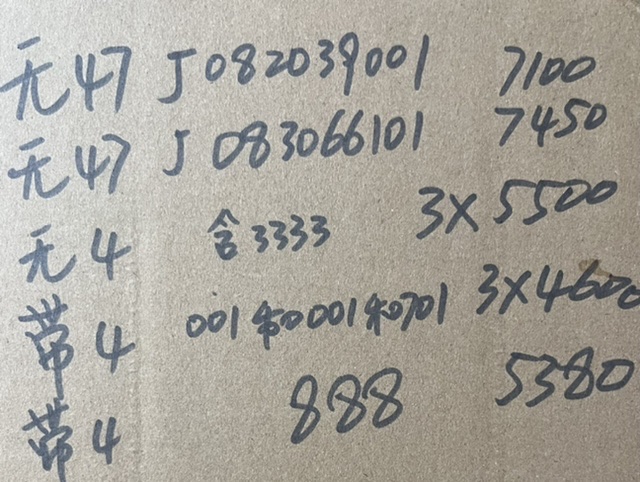 无47 J082039001 7100
无47 J083066101 7450
无4 含3333 3X5500
带4 001带0001和701 3X4600
带4 888 5380